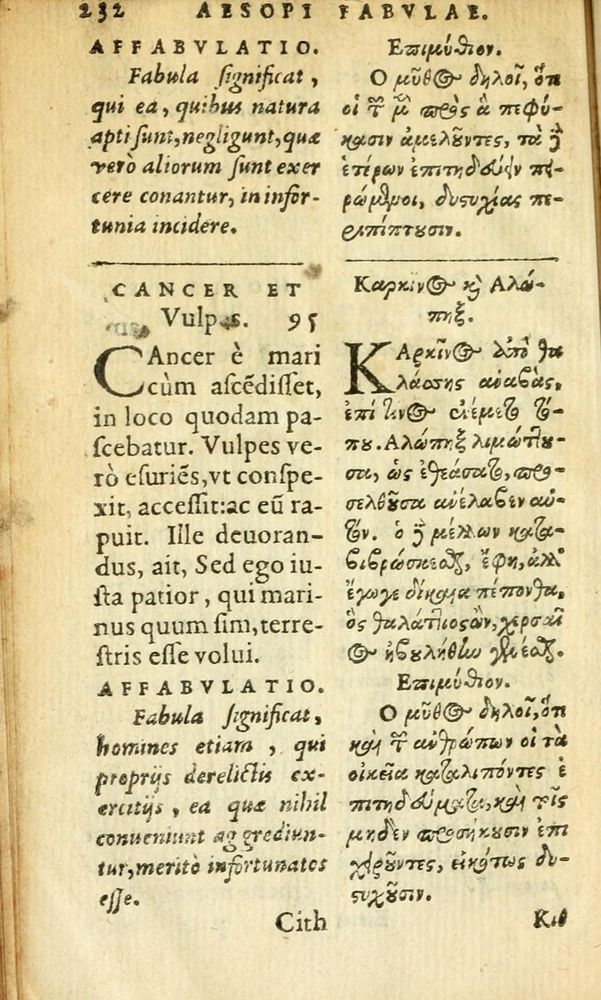 232 AESOPI FABVLAE.
AFFABVLATIO.
Fabula ſignificat,
qui ea, quibus natura
apti ſunt, negligunt, quæ
verò aliorum ſunt exer
cere conantur, in infor-
tunia incidere.
CANCER ET
Vulpes. 95
CAncer è mari
cùm aſcẽdiſſet,
in loco quodam pa-
ſcebatur. Vulpes ve-
rò eſuriẽs, vt conſpe-
xit, acceſſit: ac eũ ra-
puit. Ille deuoran-
dus, ait, Sed ego iu-
ſta patior, qui mari-
nus quum ſim, terre-
ſtris eſſe volui.
AFFABVLATIO.
Fabula ſignificat,
homines etiam, qui
proprijs derelictis ex-
ercitijs, ea quæ nihil
conueniunt aggrediun-
tur, meritò infortunatos
eſſe.
Cith
Επιμύθιον.
Ο μῦθος δηλοῖ, ὅτι
οἱ τῶν μὲν πρὸς ἃ πεφύ-
κασιν ἀμελοῦντες, τὰ δὲ
ἑτέρων ἐπιτηδεύειν πει-
ρώμενοι, δυςυχίας πε-
ριπίπτουσιν.
Καρκίνος καὶ Αλώ-
πηξ.
ΚΑρκῖνος ἀπὸ θα
λάσσης ἀναβὰς,
ἐπί τινος ἐνέμετο τό-
που. Αλώπηξ λιμώττου-
σα, ὡς ἐθεάσατο, προ-
σελθοῦσα ἀνέλαβεν αὐ-
τόν. ὁ δὲ μέλλων κατα-
βιβρώσκεσθαι, ἔφη, ἀλλ'
ἔγωγε δίκαια πέπονθα,
ὃς θαλάττιος ὢν, χερσαῖ
ος ἠβουλήθην γενέσθαι.
Επιμύθιον.
Ο μῦθος δηλοῖ, ὅτι
καὶ τῶν ἀνθρώπων οἱ τὰ
οἰκεῖα καταλιπόντες ἐ
πιτηδεύματα, καὶ τοῖς
μηδὲν προσήκουσιν ἐπι
χειροῦντες, εἰκότως δυ-
ςυχοῦσιν.
Κιθ